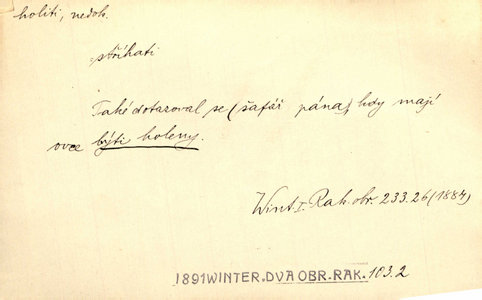 holiti, nedok.
stříhati
Také dotazoval se (šafář pána), kdy mají
ovce býti holeny.
Wint. I. Rak. obr. 233.26 (1884)
1891 WINTER.DVA OBR.RAK. 103.2